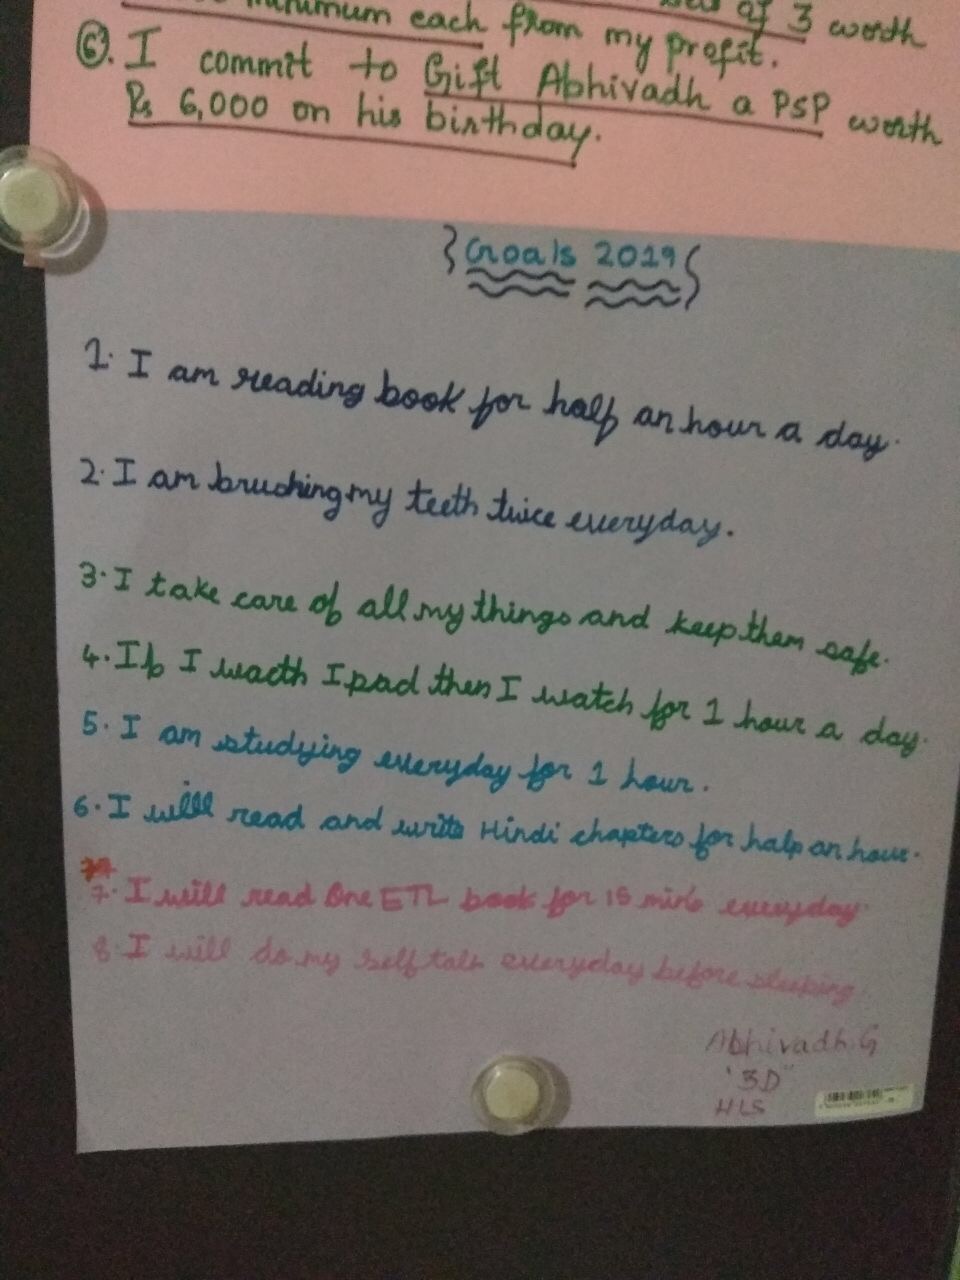 minimum each from my profit. of 3 worth
⑥. I commit to Gift Abhivadh a PSP worth
Rs 6,000 on his birthday.
Goals 2019
1. I am reading book for half an hour a day.
2. I am bruching my teeth twice everyday.
3. I take care of all my things and keep them safe.
4. If I wacth Ipad then I watch for 1 hour a day.
5. I am studying everyday for 1 hour.
6. I will read and write Hindi chapters for half an hour.
7. I will read One ETL book for 15 mins everyday
8. I will do my self talk everyday before sleeping
Abhivadh.G
'3D"
HLS